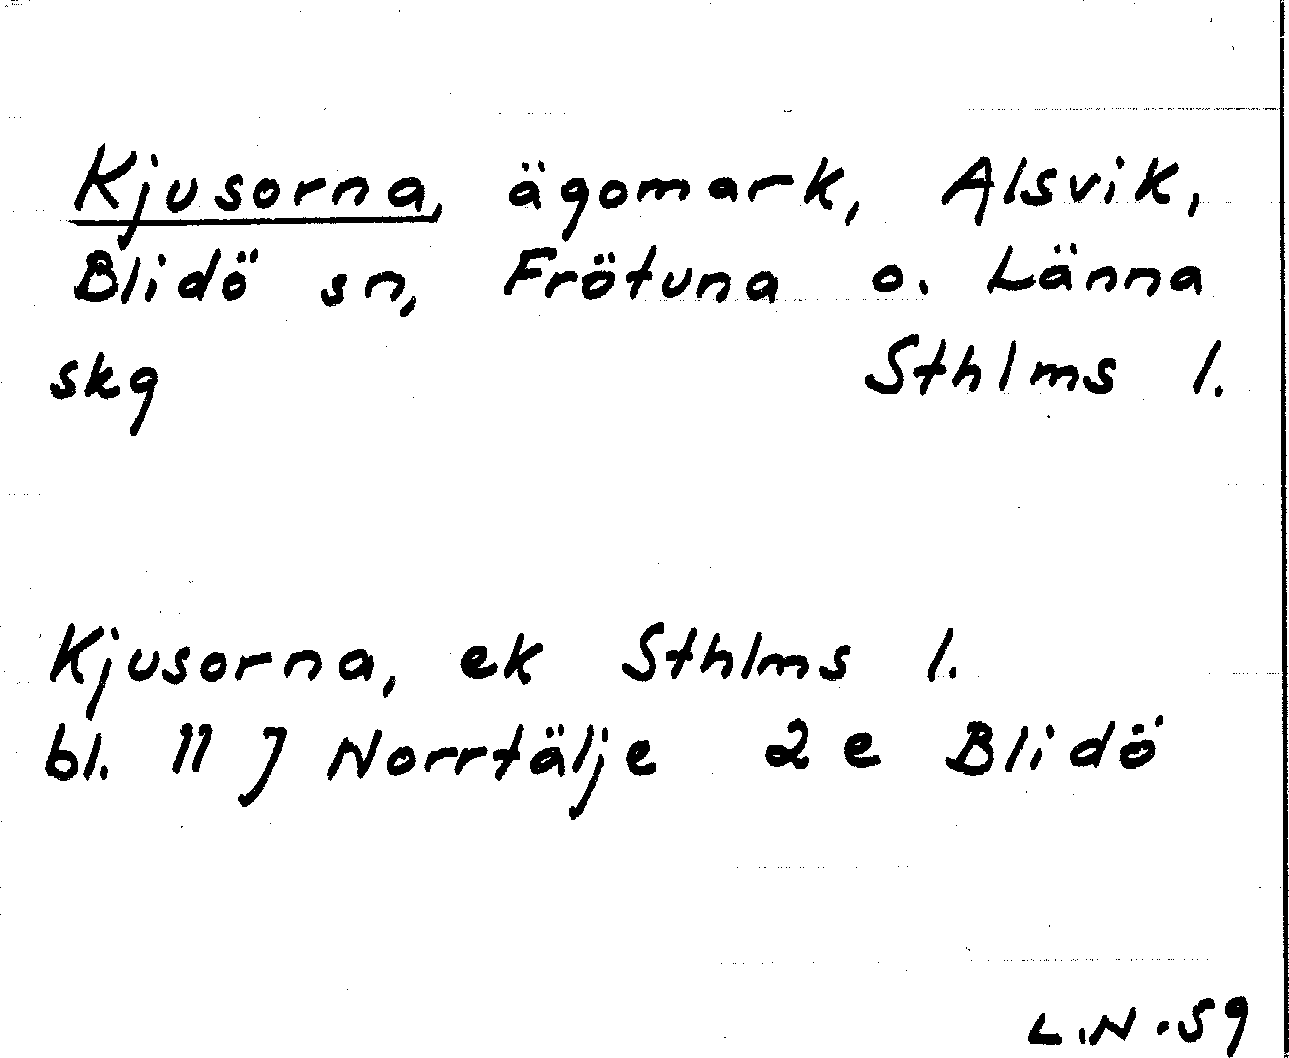 Kjusorna, ägomark, Alsvik,
Blidö sn, Frötuna o. Länna
skg Sthlms l.
Kjusorna, ek Sthlms l.
bl. 11 J Norrtälje 2 e Blidö
L.N.59